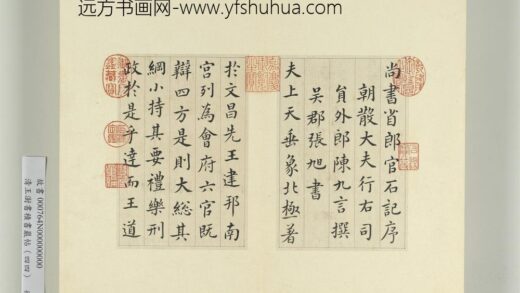 远方书画网-www.yfshuhua.com
尚書省郎官石記序
朝散大夫行右司
負外郎陳九言撰
吳郡張旭書
夫上天垂象北極著
於文昌先王建邦南
宮列為會府六官既
辯四方是則大総其
綱小持其要禮樂刑
政於是乎達而王道
故書000764N000000000
清王澍書積書巖帖(四四)